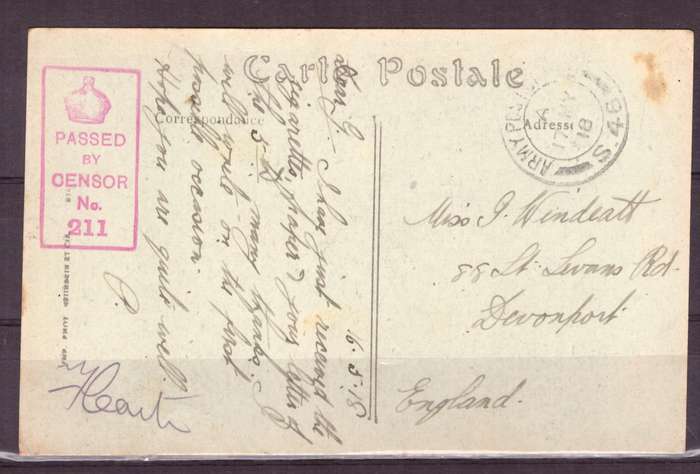 Carte Postale
Correspondance
Adresse
PASSED
BY
CENSOR
No.
211
ARMY POST
A
17 MY
18
S.46
16.5.18
Dear G. I have just received the
cigarettes, paper & long letter of
the 5th, many thanks. I
will write on the first
possible occasion.
Hope you are quite well.
Miss J. Windeatt
88 St. Levans Rd.
Devonport
England.